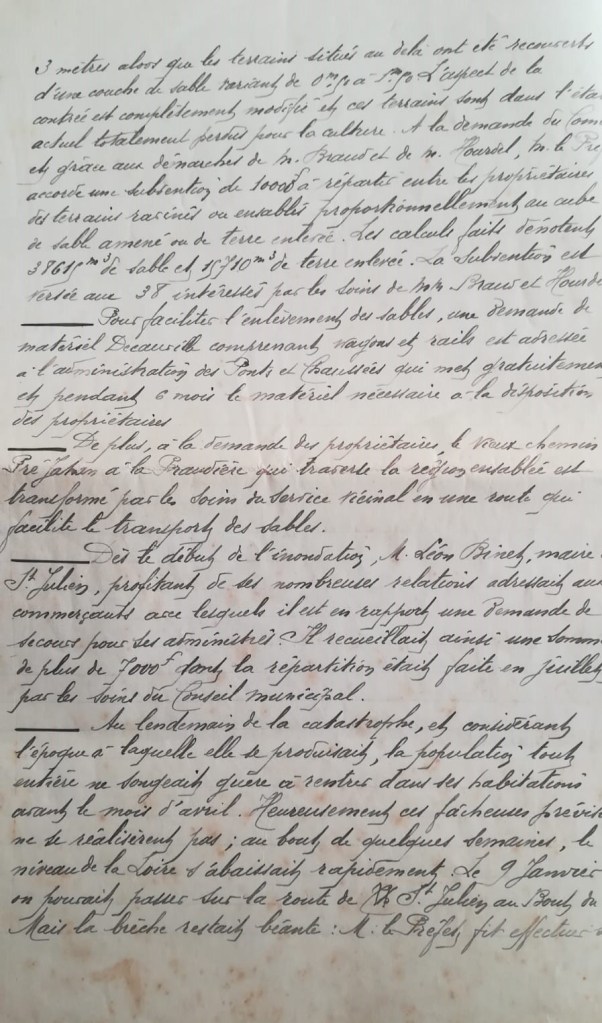 3 mètres alors que les terrains situés au delà ont été recouverts
d'une couche de sable variant de 0m50 à 1m50 L'aspect de la
contrée est complètement modifié et ces terrains sont dans l'état
actuel totalement perdus pour la culture. A la demande du
et grâce aux démarches de M. Braud et de M. Hourdel, M. le
accorde une subvention de 10000f à répartir entre les propriétaires
des terrains ravinés ou ensablés proportionnellement au cube
de sable amené ou de terre enlevée. Les calculs faits dénotent
38615m3 de sable et 15710m3 de terre enlevée. La subvention est
versée aux 38 intéressés par les soins de MM Braud et
Pour faciliter l'enlèvement des sables, une demande de
matériel Decauville comprenant wagons et rails est adressée
à l'administration des Ponts et Chaussées qui met gratuitement
et pendant 6 mois le matériel nécessaire à la disposition
des propriétaires
De plus, à la demande des propriétaires, le vieux chemin
Pré Jahan à la Praudière qui traverse la région ensablée est
transformé par les soins du service vicinal en une route qui
facilite le transport des sables.
Dès le début de l'inondation, M. Léon Binet, maire
St Julien, profitant de ses nombreuses relations adressait aux
commerçants avec lesquels il est en rapport une demande de
secours pour ses administrés. Il recueillait ainsi une somme
de plus de 7000f dont la répartition était faite en juillet
par les soins du Conseil municipal.
Au lendemain de la catastrophe, et considérant
l'époque à laquelle elle se produisait, la population tout
entière ne songeait guère à rentrer dans ses habitations
avant le mois d'avril. Heureusement ces fâcheuses
ne se réalisèrent pas ; au bout de quelques semaines, le
niveau de la Loire s'abaissait rapidement. Le 9 Janvier
on pouvait passer sur la route de St Julien au Bout du
Mais la brèche restait béante : M. le Préfet fit effectuer